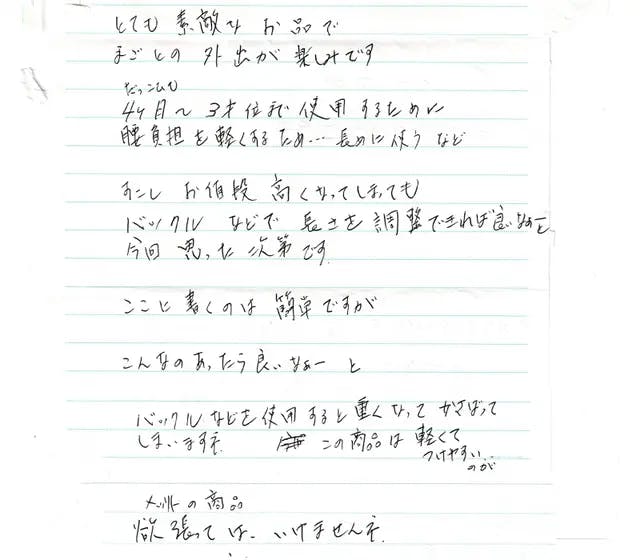 とても 素敵な お品で
まごとの 外出が 楽しみです
だっこひも
4ヶ月〜3才位まで使用するために
腰負担を軽くするため…長めに使うなど
すこし お値段 高くなってしまっても
バックル などで 長さを調整できれば良いなぁーと
今回 思った 次第です。
ここに 書くのは 簡単ですが
こんなのあったら良いなぁー と
バックルなどを使用すると重くなって かさばって
しまいますネ この商品は 軽くて
つけやすい。
のが
メリットの商品
欲張っては、いけませんネ。